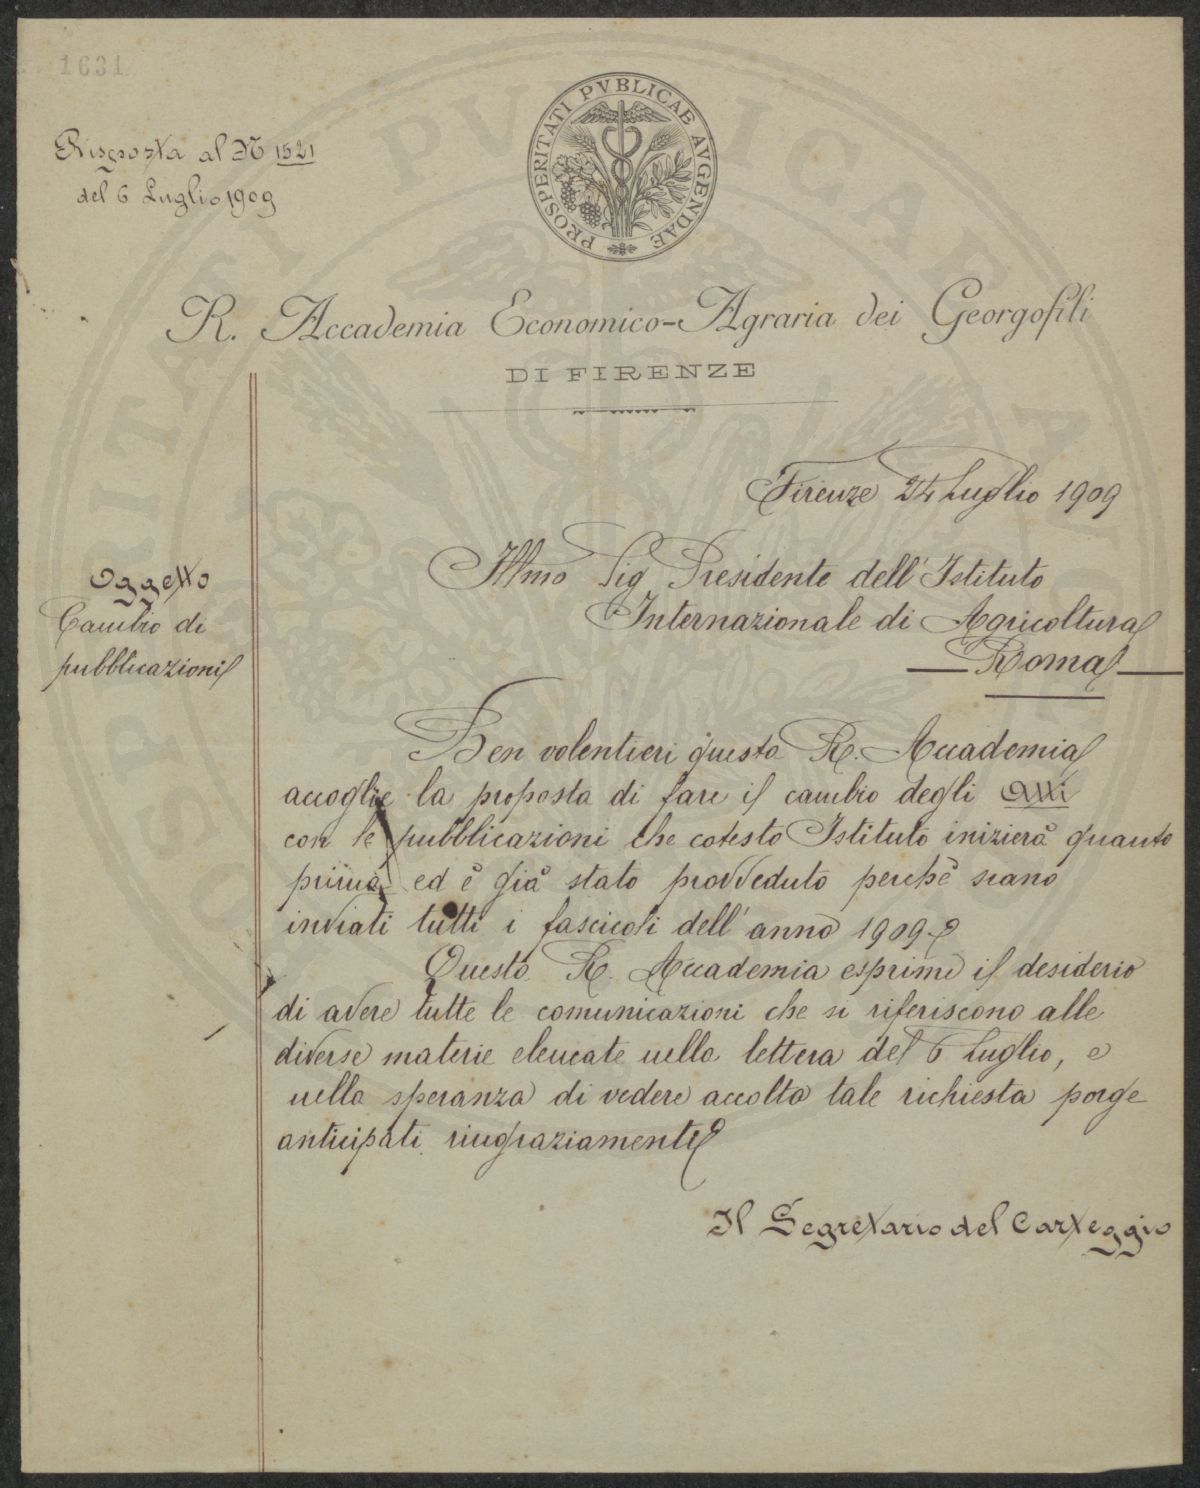 1631
Risposta al N 1521
del 6 Luglio 1909
PROSPERITATI PVBLICAE AVGENDAE
R. Accademia Economico-Agraria dei Georgofili
DI FIRENZE
Firenze 24 Luglio 1909
Oggetto
Cambio di
pubblicazioni
Illmo Sig Presidente dell'Istituto
Internazionale di Agricoltura
Roma
Ben volentieri questa R. Accademia
accoglie la proposta di fare il cambio degli Atti
con le pubblicazioni che cotesto Istituto inizierà quanto
prima ed è già stato provveduto perchè siano
inviati tutti i fascicoli dell'anno 1909.
Questa R. Accademia esprime il desiderio
di avere tutte le comunicazioni che si riferiscono alle
diverse materie elencate nella lettera del 6 Luglio, e
nella speranza di vedere accolta tale richiesta porge
anticipati ringraziamenti
Il Segretario del Carteggio